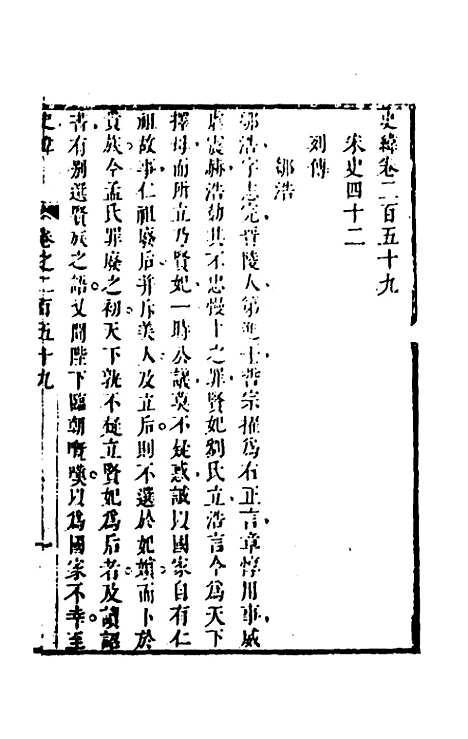 史緯卷二百五十九
宋史四十二
列傳
鄒浩
鄒浩字志完晉陵人第進士哲宗擢為右正言章惇用事威
虐震赫浩劾其不忠慢上之罪賢妃劉氏立浩言今為天下
擇母而所立乃賢妃一時公議莫不疑惑誠以國家自有仁
祖故事仁祖廢后并斥美人及立后則不選於妃嬪而卜於
貴族今孟氏罪廢之初天下孰不疑立賢妃為后者及讀詔
書有別選賢族之語又聞陛下臨朝慨嘆以為國家不幸至
史緯 卷之二百五十九